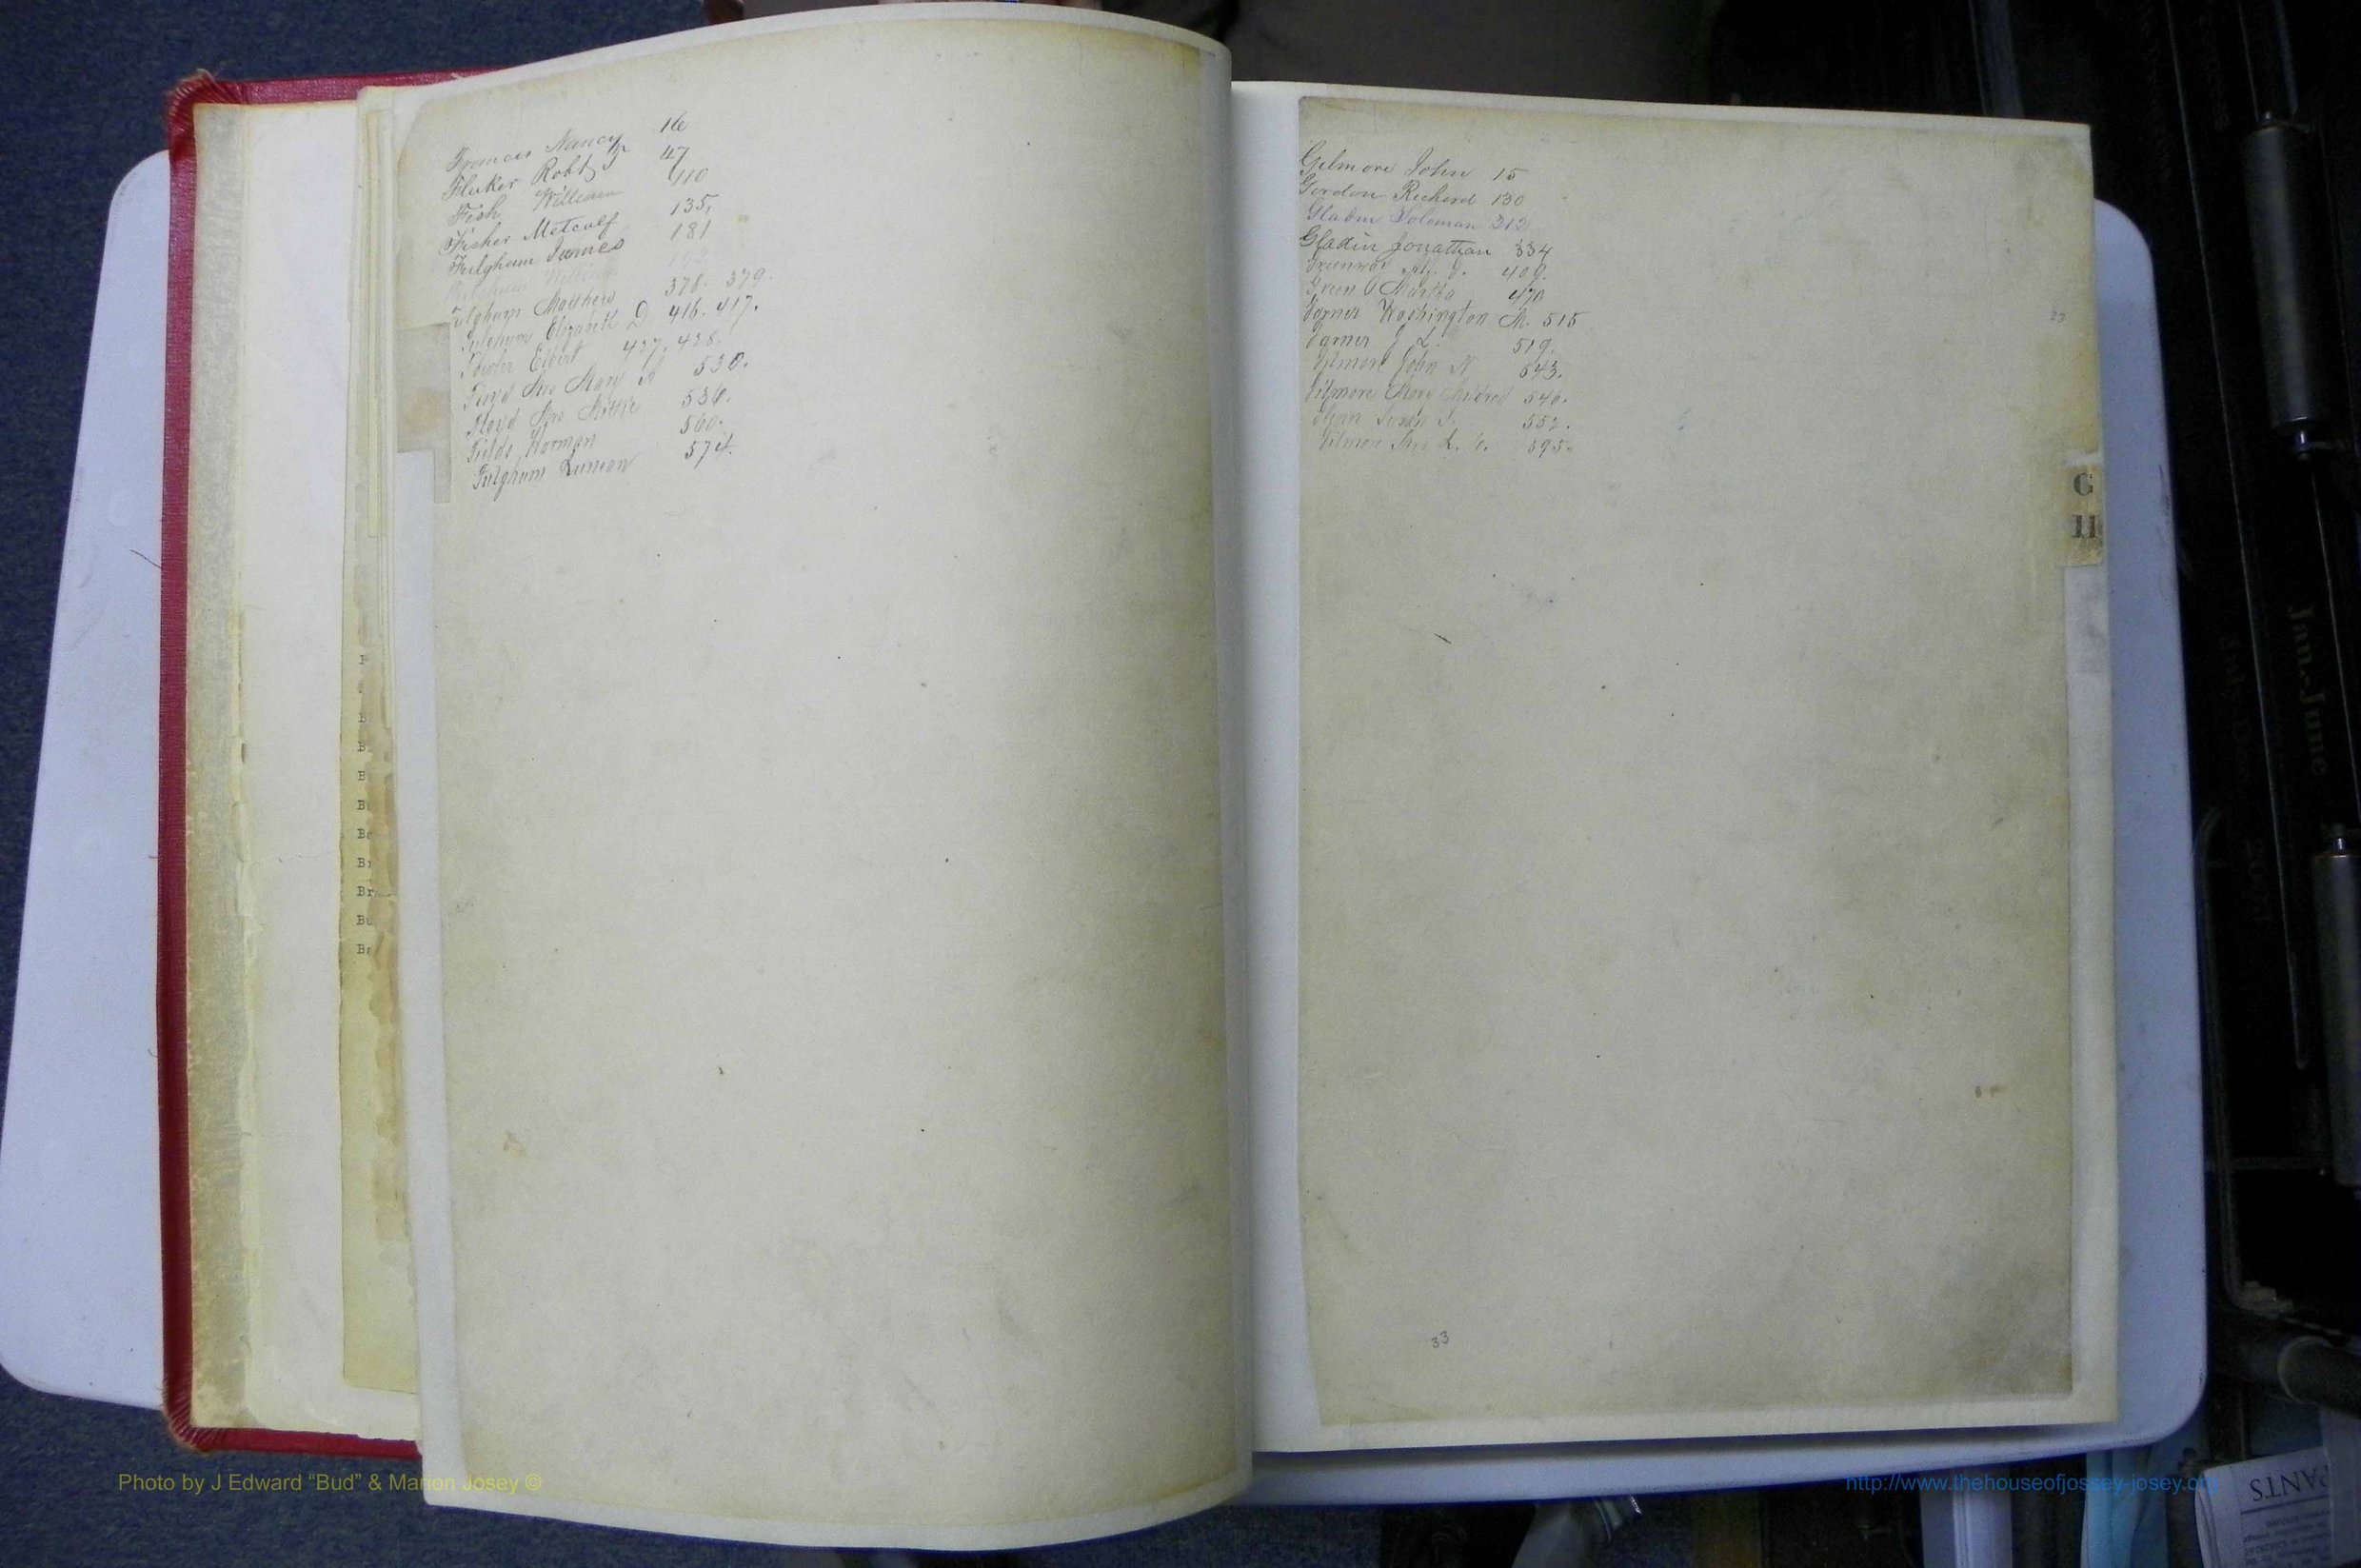 Frances Nancy 16
Fluker Robt 47
Fish William 110
Fisher Metcalf 135,
Fulghum James 181
Fulghum William 192
Fulghum Matthew 378. 379.
Fulghum Elizabeth D 416. 417.
Fowler Elbert 437. 438.
Floyd Mrs Mary A 530.
Floyd Mrs Mittie 536.
Fields Norman 560.
Fulghum Lumon 574.
Gilmore John 15
Gordon Richard 130
Gladin Soloman 212
Gladin Jonathan 334
409.
Green Martha 470
Garner Washington M. 515
Garner J L. 519.
Gilmore John N 543.
Gilmore Mary Mildred 546.
Susan J. 552.
Gilmore Mrs L. C. 595.
23
G
11
33
B
B
B
Be
Br
Br
Bu
Jan.-June
PANTS
Photo by J Edward “Bud” & Marion Josey ©
http://www.thehouseofjossey-josey.org